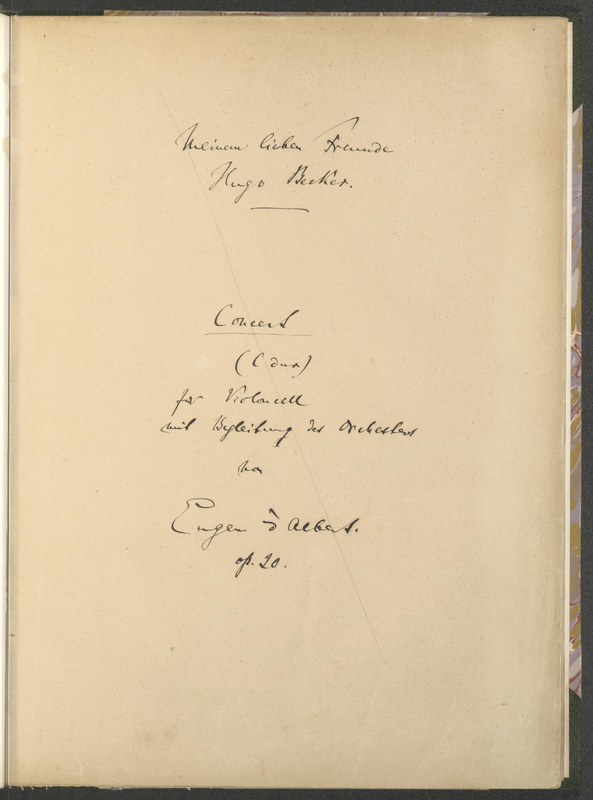 Meinem lieben Freunde
Hugo Becker.
Concert
(C dur)
für Violoncell
mit Begleitung des Orchesters
von
Eugen d'Albert.
op. 20.